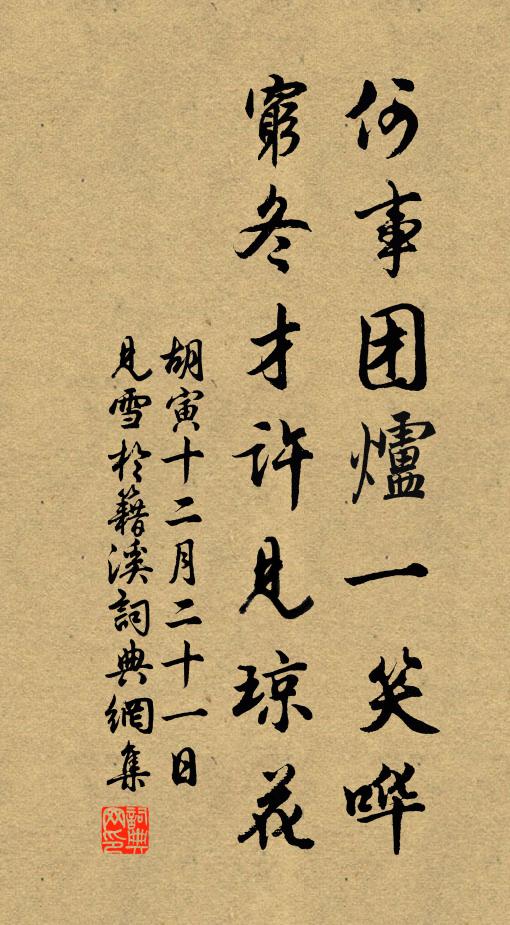 何事团爐一笑哗
窮冬才许見琼花
胡寅十二月二十一日
見雪於籍溪詞典網集
詞典网印